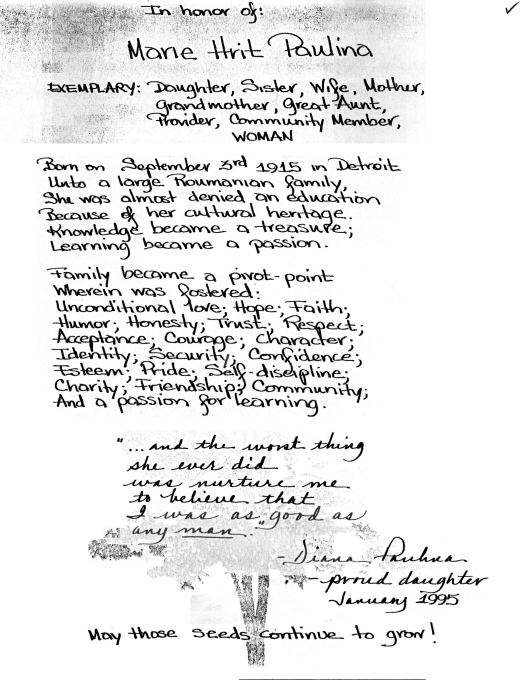 In honor of:
Marie Hrit Paulina
EXEMPLARY: Daughter, Sister, Wife, Mother,
Grandmother, Great Aunt,
Provider, Community Member,
WOMAN
Born on September 3rd 1915 in Detroit
Unto a large Roumanian family,
She was almost denied an education
Because of her cultural heritage.
Knowledge became a treasure;
Learning became a passion.
Family became a pivot-point
Wherein was fostered:
Unconditional love; Hope; Faith;
Humor; Honesty; Trust; Respect;
Acceptance; Courage; Character;
Identity; Security; Confidence;
Esteem; Pride; Self-discipline;
Charity; Friendship; Community;
And a passion for learning.
"...and the worst thing
she ever did
was nurture me
to believe that
I was as good as
any man."
- Diana Paulina
- proud daughter
January 1995
May those seeds continue to grow!